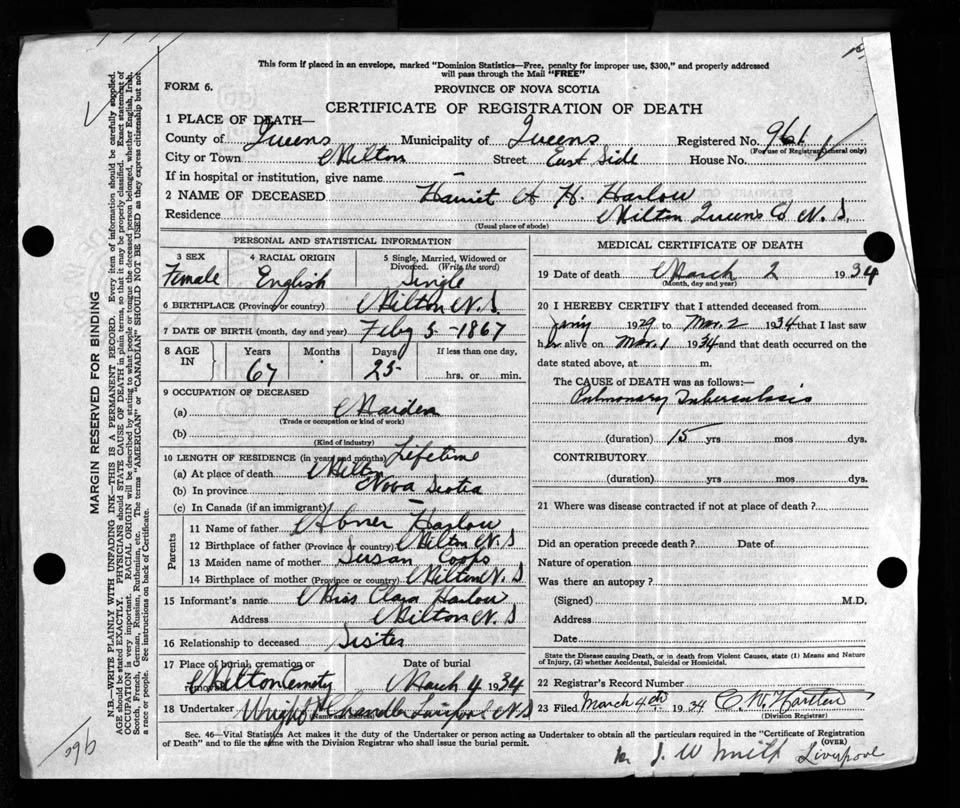 This form if placed in an envelope, marked "Dominion Statistics—Free, penalty for improper use, $300," and properly addressed
will pass through the Mail "FREE"
FORM 6.
PROVINCE OF NOVA SCOTIA
CERTIFICATE OF REGISTRATION OF DEATH
1 PLACE OF DEATH—
County of Queens Municipality of Queens Registered No. 961
(For use of Registrar General only)
City or Town Milton Street East Side House No.
If in hospital or institution, give name —
2 NAME OF DECEASED Harriet A H. Harlow
Residence Milton Queens Co N. S.
(Usual place of abode)
PERSONAL AND STATISTICAL INFORMATION
3 SEX 4 RACIAL ORIGIN 5 Single, Married, Widowed or
Divorced. (Write the word)
Female English Single
6 BIRTHPLACE (Province or country) Milton N.S.
7 DATE OF BIRTH (month, day and year) Feby 5 - 1867
8 AGE IN Years Months Days If less than one day,
67 25 hrs. or min.
9 OCCUPATION OF DECEASED
(a)
(Trade or occupation or kind of work)
(b)
(Kind of industry)
10 LENGTH OF RESIDENCE (in years and months) Lifetime
(a) At place of death Milton
(b) In province Nova Scotia
(c) In Canada (if an immigrant) —
Parents
11 Name of father Abner Harlow
12 Birthplace of father (Province or country) Milton N.S
13 Maiden name of mother Susan
14 Birthplace of mother (Province or country) Milton N. S
15 Informant's name Miss Clara Harlow
Address Milton N. S
16 Relationship to deceased Sister
17 Place of burial, cremation or removal Milton Cemetery
Date of burial March 4 1934
18 Undertaker Wright & Chandler Liverpool N.S
(Name and address)
MEDICAL CERTIFICATE OF DEATH
19 Date of death March 2 1934
(Month, day and year)
20 I HEREBY CERTIFY that I attended deceased from
1929 to Mar. 2 1934 that I last saw
her alive on Mar. 1 1934 and that death occurred on the
date stated above, at m.
The CAUSE of DEATH was as follows:—
Pulmonary Tuberculosis
(duration) 15 yrs. mos. dys.
CONTRIBUTORY
(duration) yrs. mos. dys.
21 Where was disease contracted if not at place of death?
Did an operation precede death? Date of
Nature of operation
Was there an autopsy?
(Signed) M.D.
Address
Date
State the Disease causing Death, or in death from Violent Causes, state (1) Means and Nature
of Injury, (2) whether Accidental, Suicidal or Homicidal.
22 Registrar's Record Number
23 Filed March 4th 1934 C. W.
(Division Registrar)
Sec. 46—Vital Statistics Act makes it the duty of the Undertaker or person acting as Undertaker to obtain all the particulars required in the "Certificate of Registration
of Death" and to file the same with the Division Registrar who shall issue the burial permit.
(OVER)
J. W Smith Liverpool
MARGIN RESERVED FOR BINDING
N.B.—WRITE PLAINLY WITH UNFADING INK—THIS IS A PERMANENT RECORD. Every item of information should be carefully supplied.
AGE should be stated EXACTLY. PHYSICIANS should STATE CAUSE OF DEATH in plain terms, so that it may be properly classified. Exact statement of
OCCUPATION is very important. RACIAL ORIGIN will be described by stating to what people or tongue the deceased person belonged, whether English, Irish,
Scotch, French, German, Russian, Ruthenian, etc. The terms "AMERICAN" or "CANADIAN" SHOULD NOT BE USED as they express citizenship but not
a race or people. See instructions on back of Certificate.
396